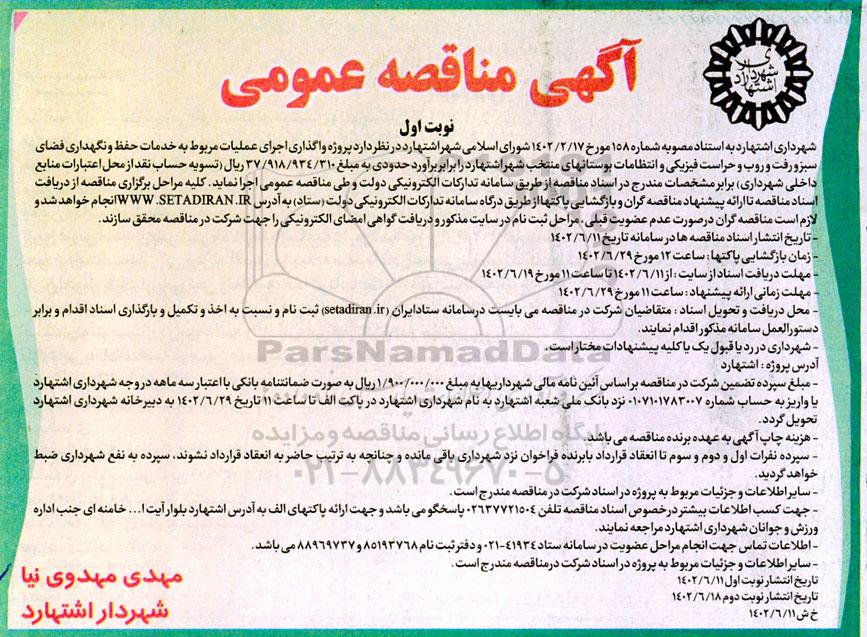 شهرداری اشتهارد
آگهی مناقصه عمومی
نوبت اول
شهرداری اشتهارد به استناد مصوبه شماره ۱۵۸ مورخ ۱۴۰۲/۲/۱۷ شورای اسلامی شهر اشتهارد در نظر دارد پروژه واگذاری اجرای عملیات مربوط به خدمات حفظ و نگهداری فضای
سبز و رفت و روب و حراست فیزیکی و انتظامات بوستانهای منتخب شهر اشتهارد را برابر برآورد حدودی به مبلغ ۳۷/۹۱۸/۹۳۴/۳۱۰ ریال (تسویه حساب نقد از محل اعتبارات منابع
داخلی شهرداری) برابر مشخصات مندرج در اسناد مناقصه از طریق سامانه تدارکات الکترونیکی دولت و طی مناقصه عمومی اجرا نماید. کلیه مراحل برگزاری مناقصه از دریافت
اسناد مناقصه تا ارائه پیشنهاد مناقصه گران و بازگشایی پاکتها از طریق درگاه سامانه تدارکات الکترونیکی دولت (ستاد) به آدرس WWW.SETADIRAN.IR انجام خواهد شد و
لازم است مناقصه گران در صورت عدم عضویت قبلی، مراحل ثبت نام در سایت مذکور و دریافت گواهی امضای الکترونیکی را جهت شرکت در مناقصه محقق سازند.
- تاریخ انتشار اسناد مناقصه ها در سامانه تاریخ ۱۴۰۲/۶/۱۱
- زمان بازگشایی پاکتها: ساعت ۱۲ مورخ ۱۴۰۲/۶/۲۹
- مهلت دریافت اسناد از سایت: از ۱۴۰۲/۶/۱۱ تا ساعت ۱۱ مورخ ۱۴۰۲/۶/۱۹
- مهلت زمانی ارائه پیشنهاد: ساعت ۱۱ مورخ ۱۴۰۲/۶/۲۹
- محل دریافت و تحویل اسناد: متقاضیان شرکت در مناقصه می بایست در سامانه ستاد ایران (setadiran.ir) ثبت نام و نسبت به اخذ و تکمیل و بارگذاری اسناد اقدام و برابر
دستورالعمل سامانه مذکور اقدام نمایند.
- شهرداری در رد یا قبول یک یا کلیه پیشنهادات مختار است.
ParsNamadData
آدرس پروژه: اشتهارد
- مبلغ سپرده تضمین شرکت در مناقصه بر اساس آئین نامه مالی شهرداریها به مبلغ ۱/۹۰۰/۰۰۰/۰۰۰ ریال به صورت ضمانتنامه بانکی با اعتبار سه ماهه در وجه شهرداری اشتهارد
یا واریز به حساب شماره ۰۱۰۷۱۰۱۷۸۳۰۰۷ نزد بانک ملی شعبه اشتهارد به نام شهرداری اشتهارد در پاکت الف تا ساعت ۱۱ تاریخ ۱۴۰۲/۶/۲۹ به دبیرخانه شهرداری اشتهارد
تحویل گردد.
پایگاه اطلاع رسانی مناقصه و مزایده
- هزینه چاپ آگهی به عهده برنده مناقصه می باشد.
- سپرده نفرات اول و دوم و سوم تا انعقاد قرارداد با برنده فراخوان نزد شهرداری باقی مانده و چنانچه به ترتیب حاضر به انعقاد قرارداد نشوند، سپرده به نفع شهرداری ضبط
خواهد گردید.
۰۲۱-۸۸۳۴۹۶۷۰-۵
- سایر اطلاعات و جزئیات مربوط به پروژه در اسناد شرکت در مناقصه مندرج است.
- جهت کسب اطلاعات بیشتر در خصوص اسناد مناقصه تلفن ۰۲۶۳۷۷۲۱۵۰۴ پاسخگو می باشد و جهت ارائه پاکتهای الف به آدرس اشتهارد بلوار آیت ا... خامنه ای جنب اداره
ورزش و جوانان شهرداری اشتهارد مراجعه نمایند.
- اطلاعات تماس جهت انجام مراحل عضویت در سامانه ستاد ۴۱۹۳۴-۰۲۱ و دفتر ثبت نام ۸۵۱۹۳۷۶۸ و ۸۸۹۶۹۷۳۷ می باشد.
- سایر اطلاعات و جزئیات مربوط به پروژه در اسناد شرکت در مناقصه مندرج است.
تاریخ انتشار نوبت اول ۱۴۰۲/۶/۱۱
تاریخ انتشار نوبت دوم ۱۴۰۲/۶/۱۸
خ ش ۱۴۰۲/۶/۱۱
مهدی مهدوی نیا
شهردار اشتهارد